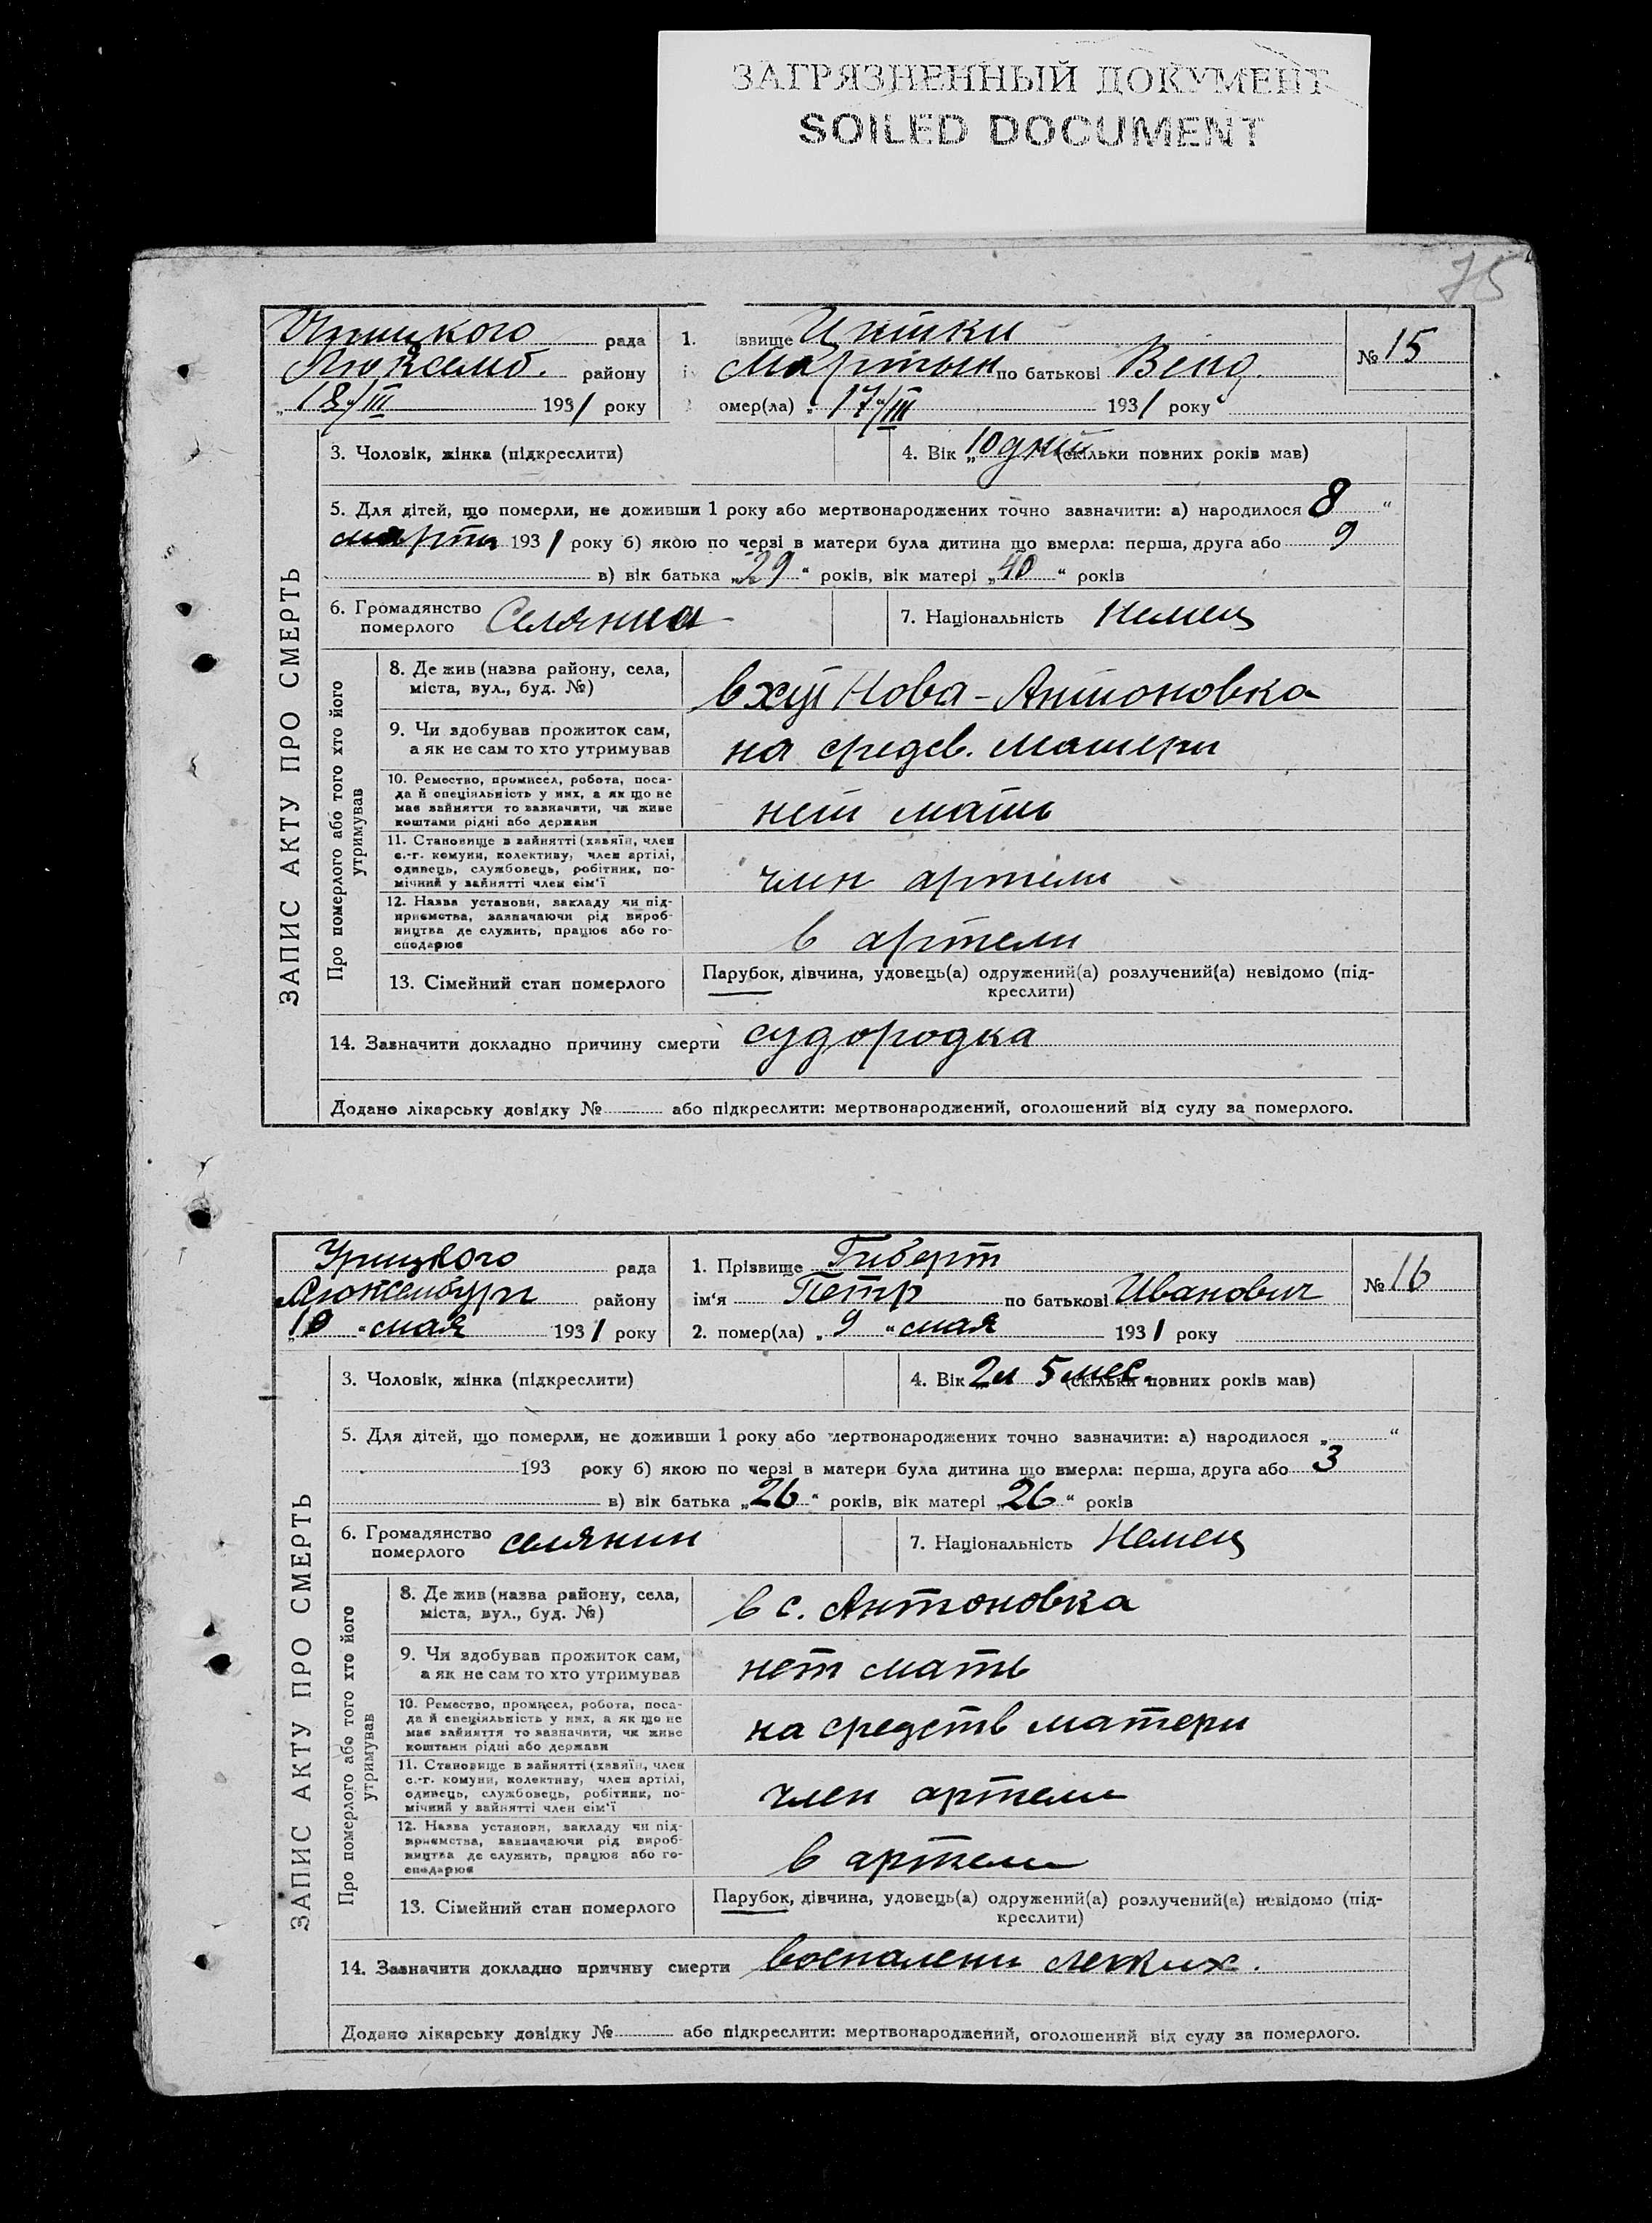 ЗАГРЯЗНЕННЫЙ ДОКУМЕНТ
SOILED DOCUMENT
75
Урицкого рада
Люксемб. району
„18/III 1931 року
1. звище
Мартын по батькові
омер(ла) „17/III 1931 року
№ 15
ЗАПИС АКТУ ПРО СМЕРТЬ
3. Чоловік, жінка (підкреслити)
4. Вік „10 дний (скільки повних років мав)
5. Для дітей, що померли, не доживши 1 року або мертвонароджених точно зазначити: а) народилося 8 “
марта 1931 року б) якою по черзі в матери була дитина що вмерла: перша, друга або 9
в) вік батька „29“ років, вік матері „40“ років
6. Громадянство
померлого Селянин
7. Національність Немец
Про померлого або того хто його
утримував
8. Де жив (назва району, села,
міста, вул., буд. №)
в хут Нова-Антоновка
9. Чи здобував прожиток сам,
а як не сам то хто утримував
на средсв. матери
10. Ремество, промисел, робота, поса-
да й спеціяльність у них, а як що не
має зайняття то зазначити, чи живе
коштами рідні або держави
нет мать
11. Становище в зайнятті (хазяїн, член
с.-г. комуни, колективу, член артілі,
одинець, службовець, робітник, по-
мічний у зайнятті член сім'ї
член артели
12. Назва установи, закладу чи під-
приємства, зазначаючи рід вироб-
ництва де служить, працює або го-
сподарює
в артели
13. Сімейний стан померлого
Парубок, дівчина, удовець(а) одружений(а) розлучений(а) невідомо (під-
креслити)
14. Зазначити докладно причину смерти судородка
Додано лікарську довідку № або підкреслити: мертвонароджений, оголошений від суду за померлого.
Урицкого рада
Люксембург району
10 “ мая 1931 року
1. Прізвище Гиберт
ім'я Петр по батькові Иванович
2. помер(ла) „9“ мая 1931 року
№ 16
ЗАПИС АКТУ ПРО СМЕРТЬ
3. Чоловік, жінка (підкреслити)
4. Вік 2 и 5 мес. (скільки повних років мав)
5. Для дітей, що померли, не доживши 1 року або мертвонароджених точно зазначити: а) народилося „ “
193 року б) якою по черзі в матери була дитина що вмерла: перша, друга або 3
в) вік батька „26“ років, вік матері „26“ років
6. Громадянство
померлого селянин
7. Національність Немец
Про померлого або того хто його
утримував
8. Де жив (назва району, села,
міста, вул., буд. №)
в с. Антоновка
9. Чи здобував прожиток сам,
а як не сам то хто утримував
нет мать
10. Ремество, промисел, робота, поса-
да й спеціяльність у них, а як що не
має зайняття то зазначити, чи живе
коштами рідні або держави
на средств матери
11. Становище в зайнятті (хазяїн, член
с.-г. комуни, колективу, член артілі,
одинець, службовець, робітник, по-
мічний у зайнятті член сім'ї
член артели
12. Назва установи, закладу чи під-
приємства, зазначаючи рід вироб-
ництва де служить, працює або го-
сподарює
в артели
13. Сімейний стан померлого
Парубок, дівчина, удовець(а) одружений(а) розлучений(а) невідомо (під-
креслити)
14. Зазначити докладно причину смерти воспалени легких.
Додано лікарську довідку № або підкреслити: мертвонароджений, оголошений від суду за померлого.